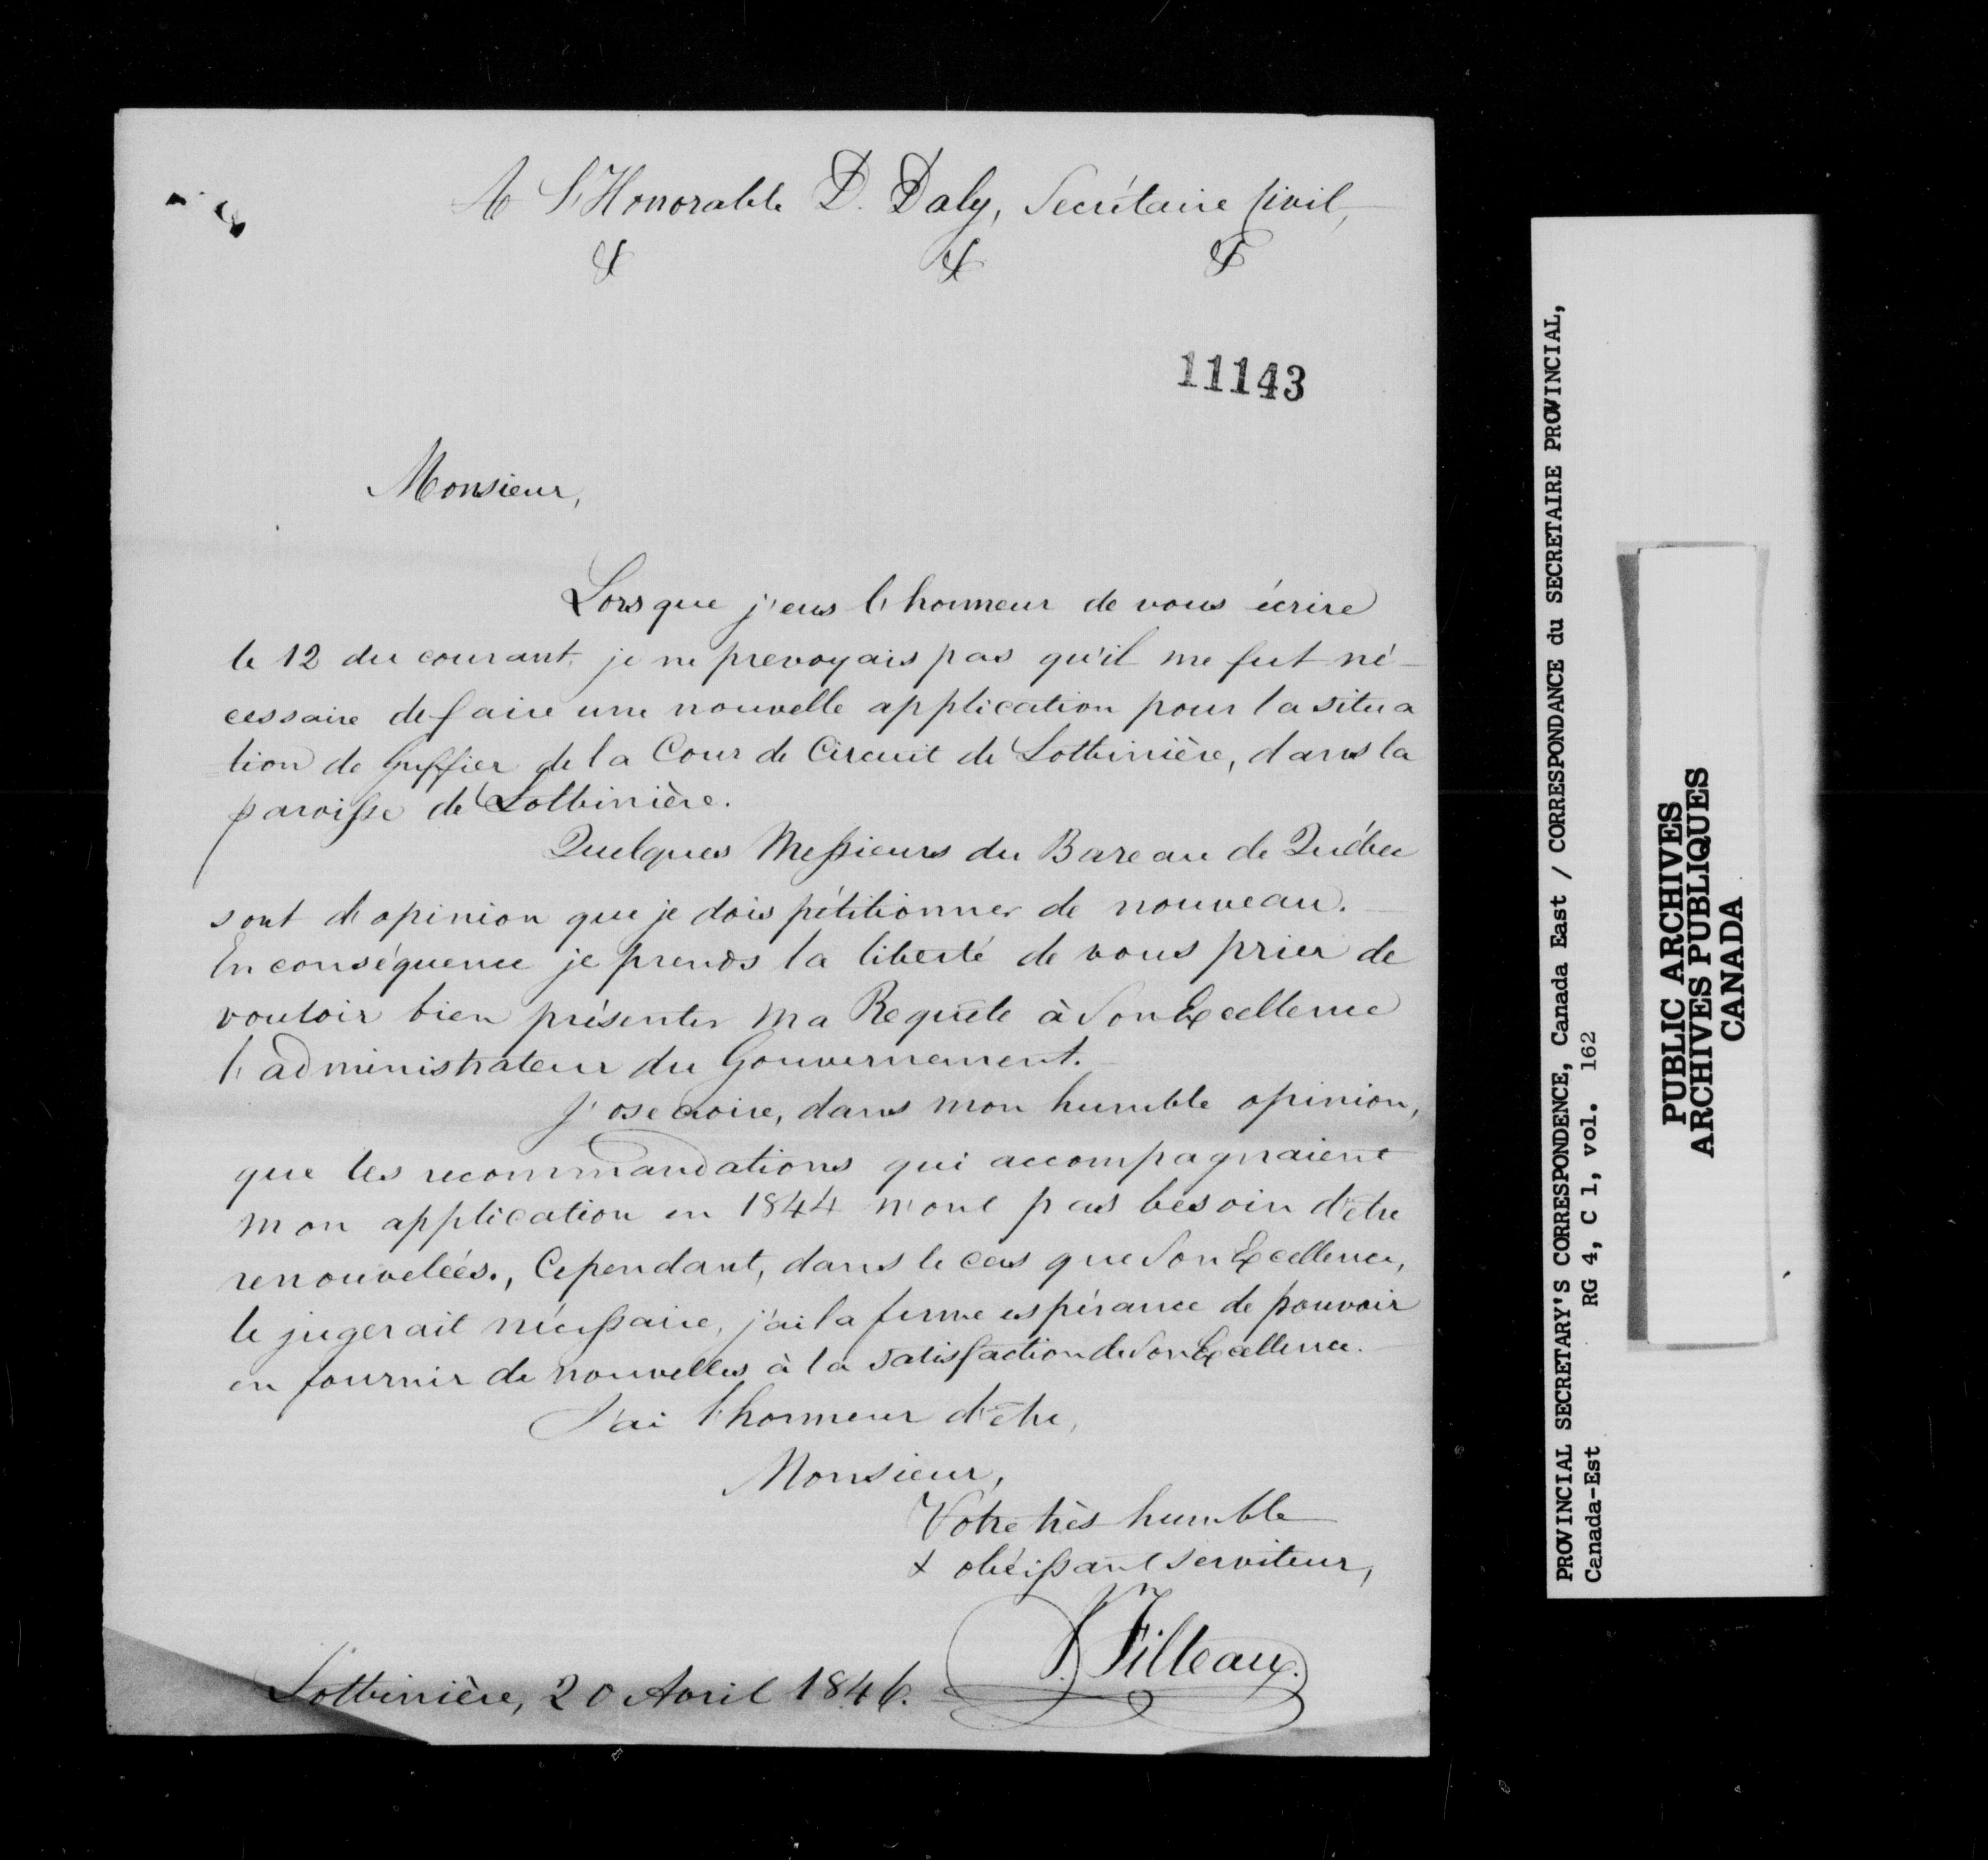 A l'Honorable D. Daly, Secrétaire Civil,
& & &
11143
Monsieur,
Lorsque j'eus l'honneur de vous écrire
le 12 du courant, je ne prevoyais pas qu'il me fut né-
cessaire de faire une nouvelle application pour la situa
tion de Greffier de la Cour de Circuit de Lotbinière, dans la
paroisse de Lotbinière.
Quelques Messieurs du Bareau de Québec
sont d'opinion que je dois pétitionner de nouveau.
En conséquence je prends la liberté de vous prier de
vouloir bien présenter ma Requête à Son Excellence
l'administrateur du Gouvernement.
J'ose croire, dans mon humble opinion,
que les recommandations qui accompagnaient
mon application en 1844 n'ont pas besoin d'être
renouvelées., Cependant, dans le cas que Son Excellence,
le jugerait nécessaire, j'ai la ferme espérance de pouvoir
en fournir de nouvelles à la satisfaction de Son Excellence.
J'ai l'honneur d'être,
Monsieur,
Votre très humble
& obéissant serviteur,
Filteau.
Lotbinière, 20 Avril 1846.
PROVINCIAL SECRETARY'S CORRESPONDENCE, Canada East / CORRESPONDANCE du SECRETAIRE PROVINCIAL,
Canada-Est RG 4, C 1, vol. 162
PUBLIC ARCHIVES
ARCHIVES PUBLIQUES
CANADA